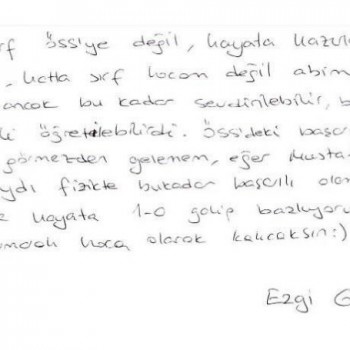 rf öss'ye değil, hayata hazırl
, hatta sırf hocam değil abim
ancak bu kadar sevdirilebilir, b
öğretilebilirdi. öss'deki başar
görmezden gelemem, eğer Musta
ydı fizikte bukadar başarılı olam
hayata 1-0 galip başlıyoru
hoca olarak kalıcaksın:)
Ezgi G